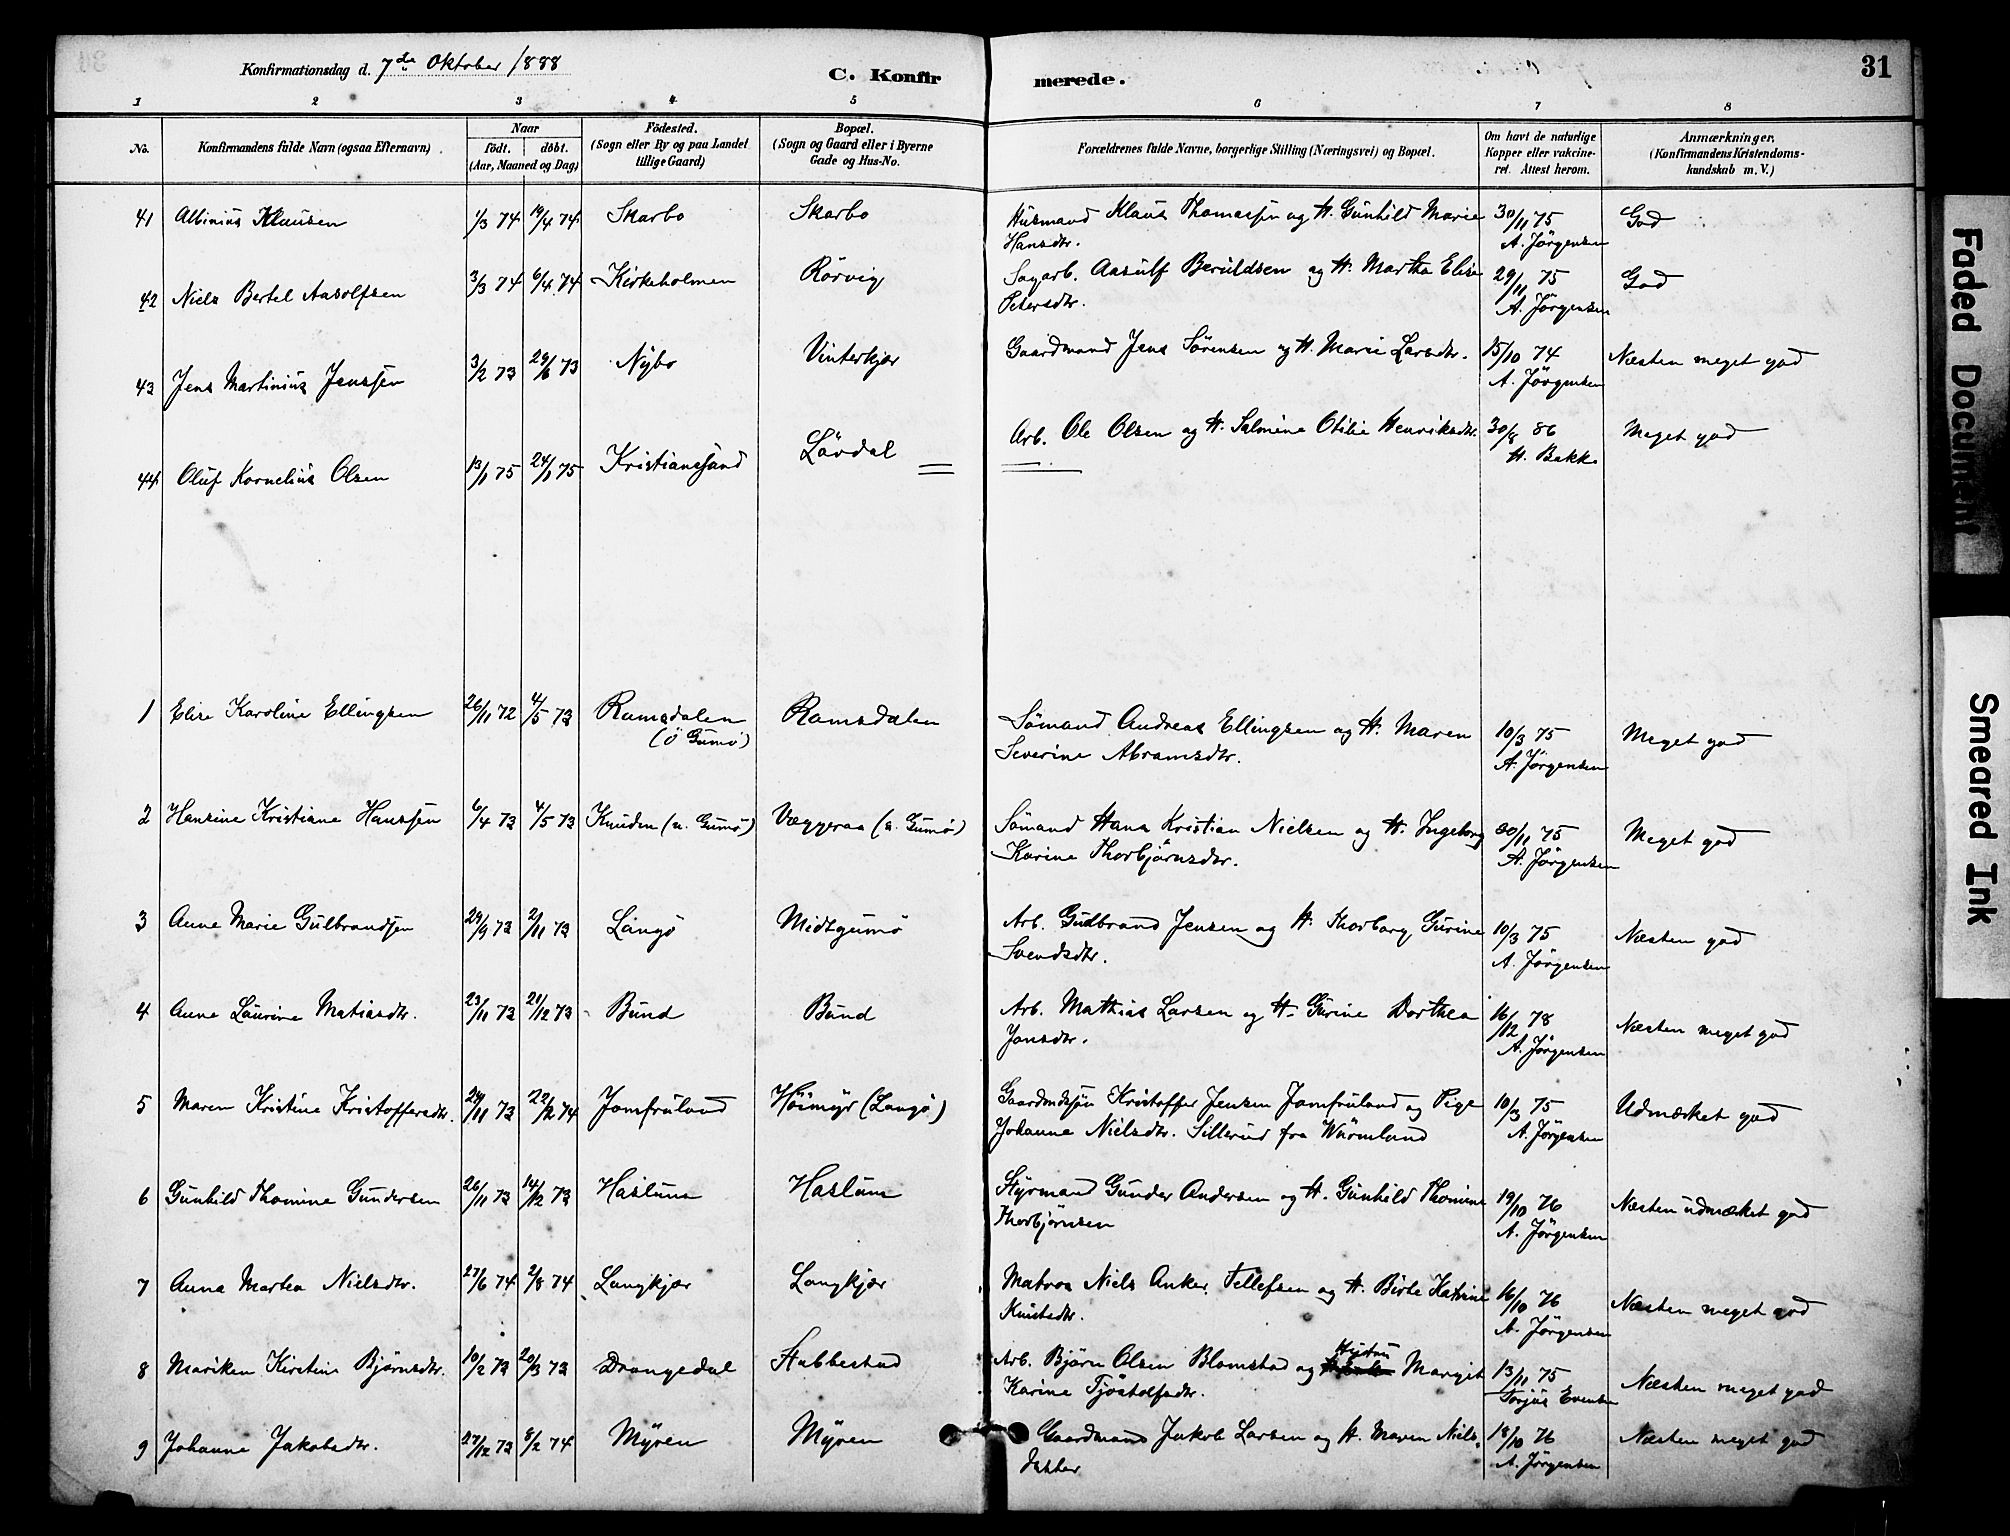 Konfirmationsdag d. 7de Oktober 1888
C. Konfir merede.
31
1 2 3 4 5 6 7 8
No.
Konfirmandens fulde Navn (ogsaa Efternavn)
Naar
födt. döbt.
(Aar, Maaned og Dag)
Födested.
(Sogn eller By og paa Landet
tillige Gaard)
Bopæl.
(Sogn og Gaard eller i Byerne
Gade og Hus-No.
Forældrenes fulde Navne, borgerlige Stilling (Næringsvei) og Bopæl.
Om havt de naturlige
Kopper eller vakcine-
ret. Attest herom.
Anmærkninger.
(Konfirmandens Kristendoms-
kundskab m. V.)
41 Albinius Klausen 1/3 74 19/4 74 Skarbo Skarbo Husmand Klaus Thomassen og H. Gunhild Marie 30/11 75 God
Hansdtr. A. Jörgensen
42 Niels Bertel Aasolfsen 3/3 74 6/4 74 Kirkeholmen Rörvig Sagarb. Aasulf Beruldsen og H. Martha Elise 29/11 75 God
Petersdtr. A. Jörgensen
43 Jens Martinius Jenssen 3/2 73 29/6 73 Nybo Vinterkjær Gaardmand Jens Sörensen og H. Marie Larsdtr. 15/10 74 Næsten meget god
A. Jörgensen
44 Oluf Kornelius Olsen 13/1 75 24/1 75 Kristianssand Lövdal Arb. Ole Olsen og H. Salmine Otilie Henriksdtr. 30/8 86 Meget god
H. Bakke
1 Elise Karoline Ellingsen 26/11 72 4/5 73 Ramsdalen Ramsdalen Sömand Andreas Ellingsen og H. Maren 10/3 75 Meget god
(ö Gumö) Severine Abramsdtr. A. Jörgensen
2 Hansine Kristiane Hanssen 6/4 73 4/5 73 Knuden (u. Gumö) Væggeraa (u. Gumö) Sömand Hans Kristian Nielsen og H. Ingeborg 30/11 75 Meget god
Karine Thorbjörnsdtr. A. Jörgensen
3 Anne Marie Gulbrandsen 29/9 73 2/11 73 Langö Midtgumö Arb. Gudbrand Jensen og H. Thorborg Gurine 10/3 75 Næsten god
Svendsdtr. A. Jörgensen
4 Anne Laurine Matiasdtr. 23/11 73 21/12 73 Bund Bund Arb. Mathias Larsen og H. Gurine Dorthea 16/12 78 Næsten meget god
Jonsdtr. A. Jörgensen
5 Maren Kristine Kristoffersdtr. 29/11 73 22/2 74 Jomfruland Höimyr (Langö) Gaardmdssön Kristoffer Jensen Jomfruland og Pige 10/3 75 Udmærket god
Johanne Nielsdtr. Sillerud fra Wärmland A. Jörgensen
6 Gunhild Thomine Gundersen 26/11 73 14/12 73 Haslum Haslum Styrmand Gunder Andersen og H. Gunhild Thomine 19/10 76 Næsten udmærket god
Thorbjörnsen A. Jörgensen
7 Anna Martea Nielsdtr. 27/6 74 2/8 74 Langkjær Langkjær Matros Niels Anker Tellefsen og H. Birte Katrine 16/10 76 Næsten meget god
Knutsdtr. A. Jörgensen
8 Mariken Kirstine Björnsdtr. 10/2 73 20/3 73 Drangedal Stabbestad Arb. Björn Olsen Blomstad og Hustru Margit 13/11 75 Næsten meget god
Karine Tjöstolfsdtr. Torjus Evensen
9 Johanne Jakobsdtr. 27/12 73 8/2 74 Myren Myren Gaardmand Jakob Larsen og H. Maren Niels- 18/10 76 Næsten meget god
datter A. Jörgensen
Faded Document
Smeared Ink